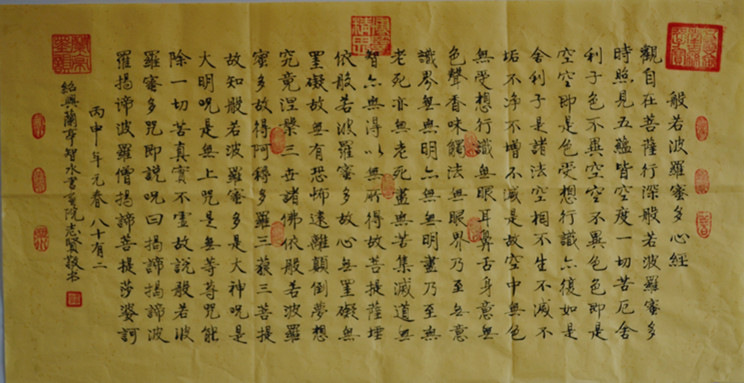 般若波羅蜜多心經
觀自在菩薩行深般若波羅蜜多
時照見五蘊皆空度一切苦厄舍
利子色不異空空不異色色即是
空空即是色受想行識亦復如是
舍利子是諸法空相不生不滅不
垢不净不增不減是故空中無色
無受想行識無眼耳鼻舌身意無
色聲香味觸法無眼界乃至無意
識界無無明亦無無明盡乃至無
老死亦無老死盡無苦集滅道無
智亦無得以無所得故菩提薩埵
依般若波羅蜜多故心無罣礙無
罣礙故無有恐怖遠離顛倒夢想
究竟涅槃三世諸佛依般若波羅
蜜多故得阿耨多羅三藐三菩提
故知般若波羅蜜多是大神咒是
大明咒是無上咒是無等等咒能
除一切苦真實不虛故說般若波
羅蜜多咒即說咒曰揭諦揭諦波
羅揭諦波羅僧揭諦菩提莎婆訶
丙申年元春八十有二
紹興蘭亭智水書画院志賢敬书